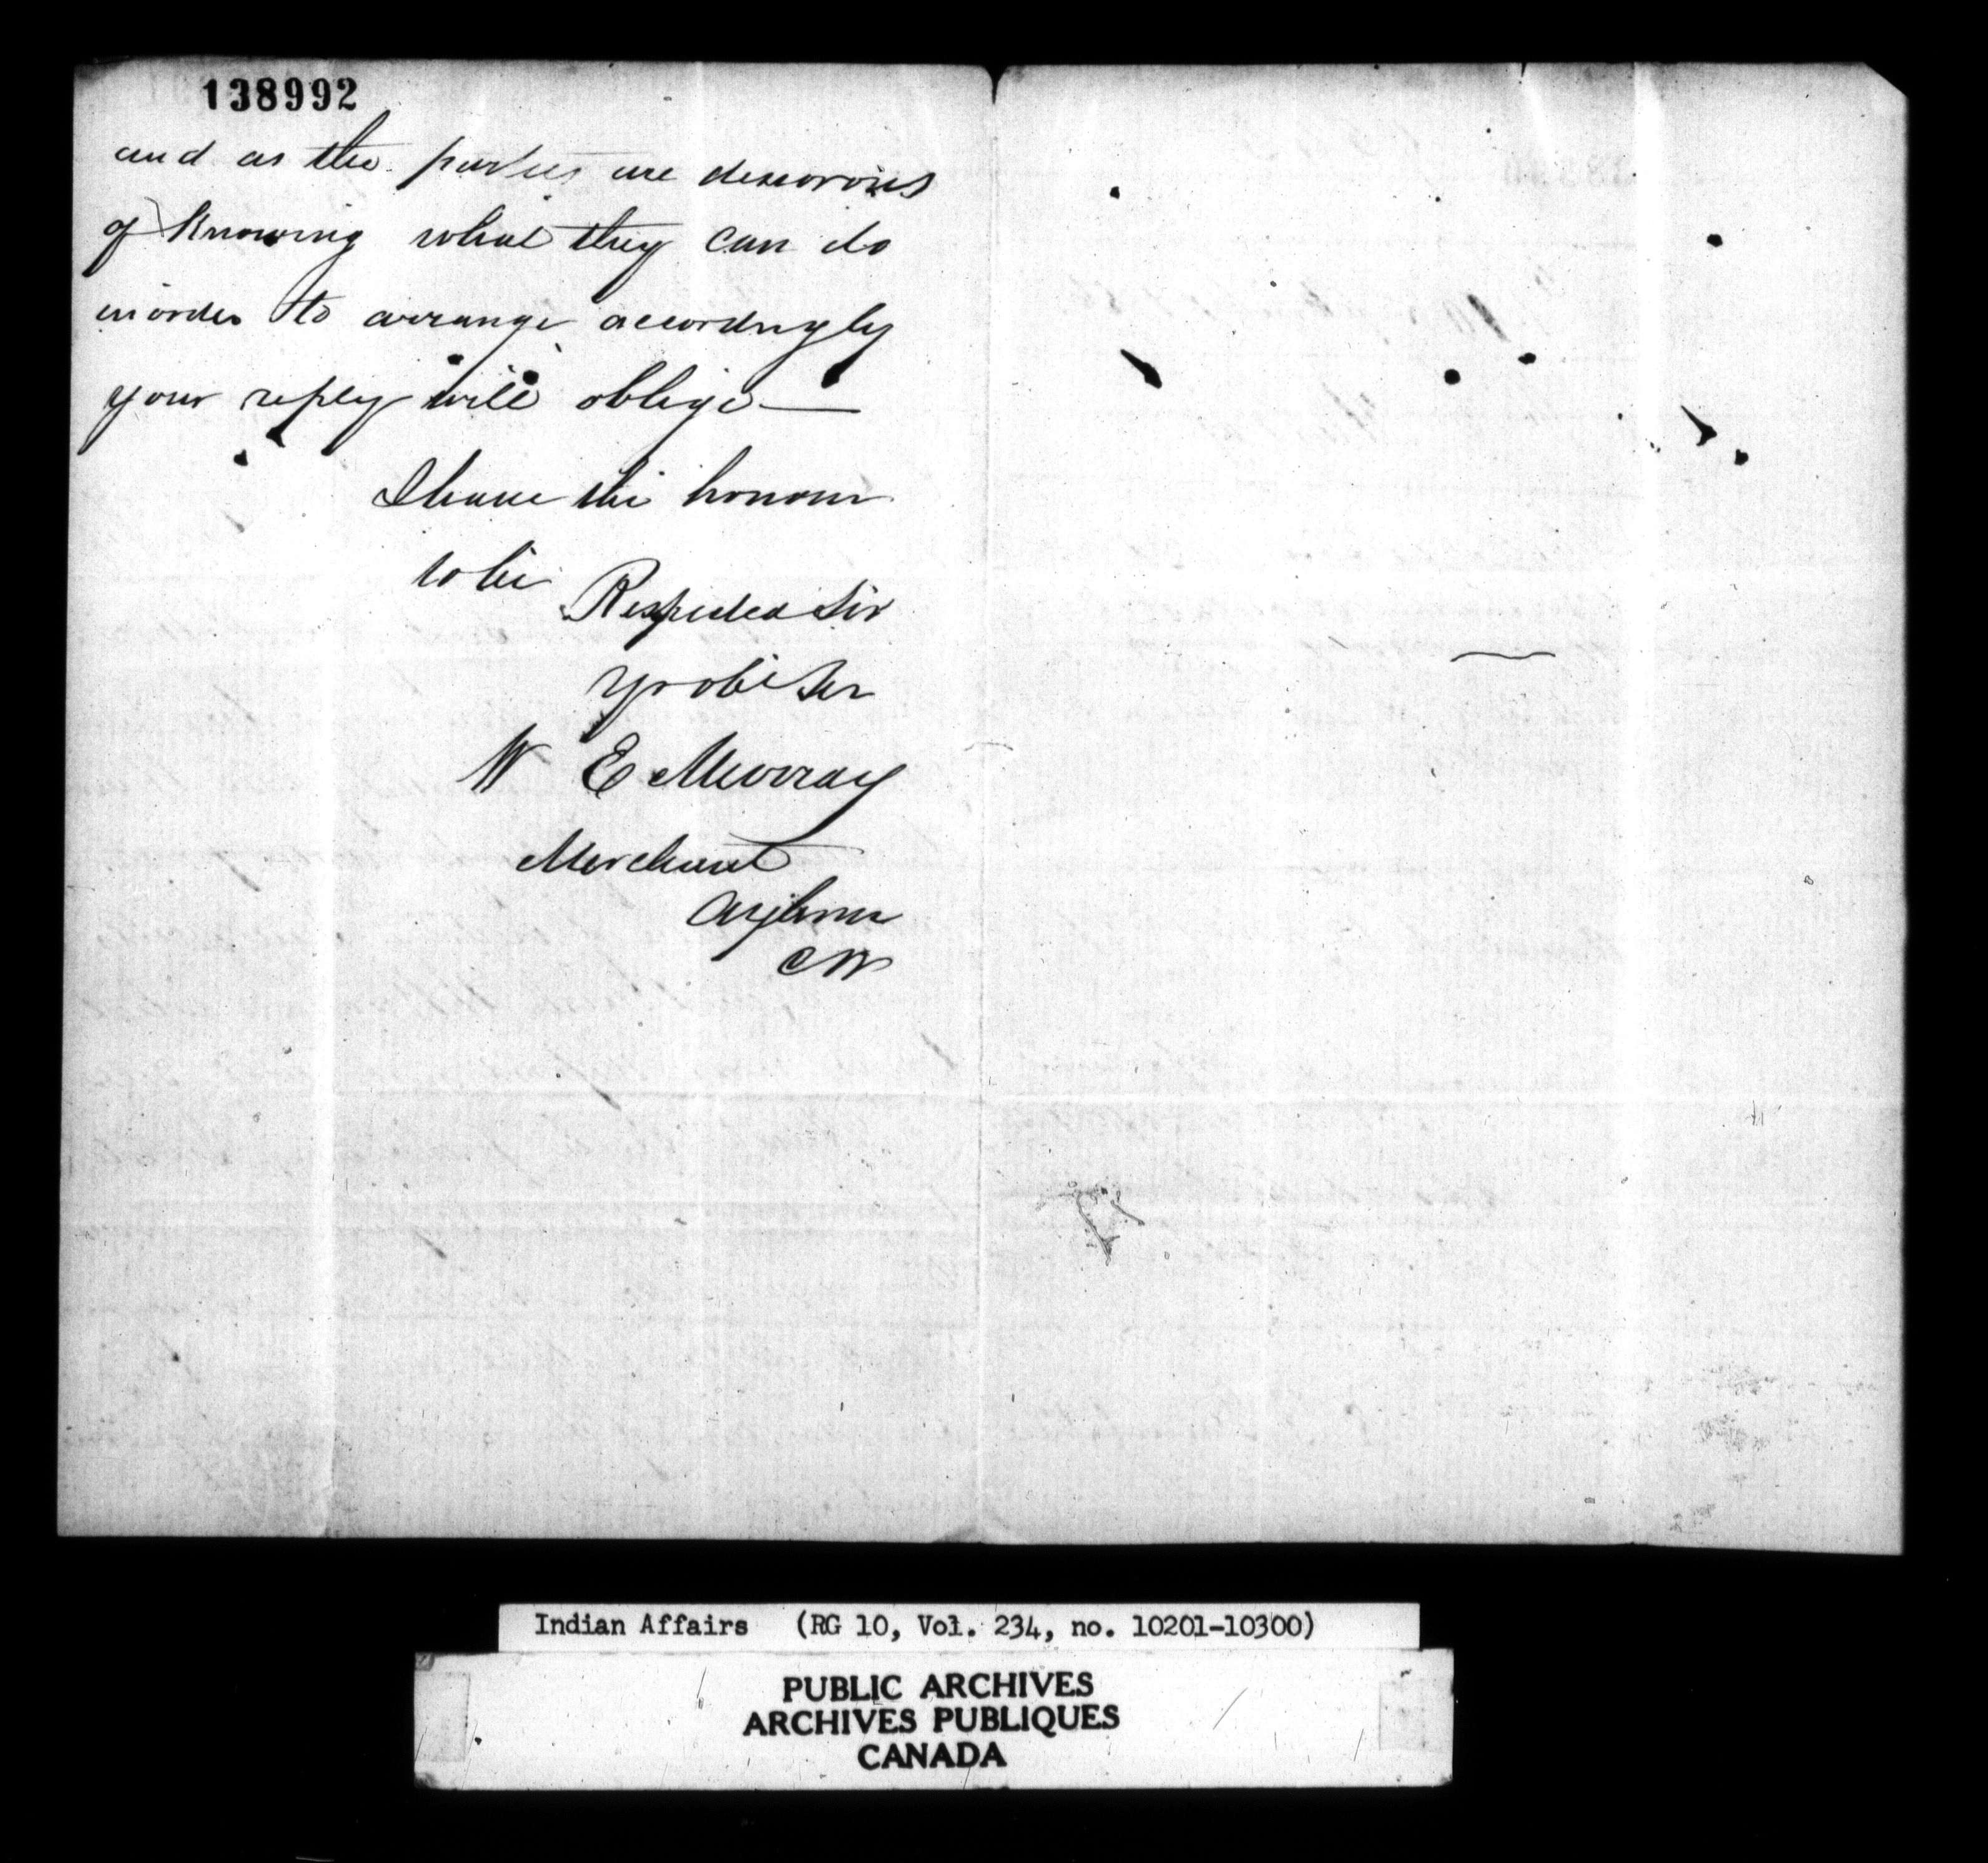 138992
and as the parties are desierous
of Knowing what they can do
inorder to arrange accordingly
your reply will oblige —
I have the honour
to be
Respected Sir
yr obt Ser
W E Murray
Merchant
Aylmer
CW
Indian Affairs (RG 10, Vol. 234, no. 10201-10300)
PUBLIC ARCHIVES
ARCHIVES PUBLIQUES
CANADA